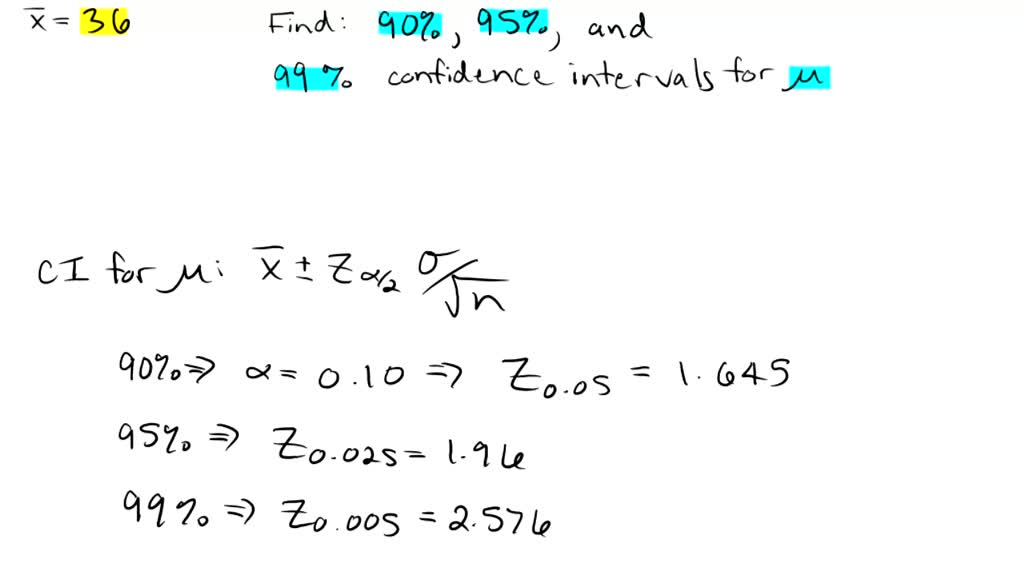 x̄ = 36 Find: 90%, 95%, and
99% confidence intervals for μ
CI for μ: x̄ ± Z α/2 σ/√n
90% ⇒ α = 0.10 ⇒ Z0.05 = 1.645
95% ⇒ Z0.025 = 1.96
99% ⇒ Z0.005 = 2.576